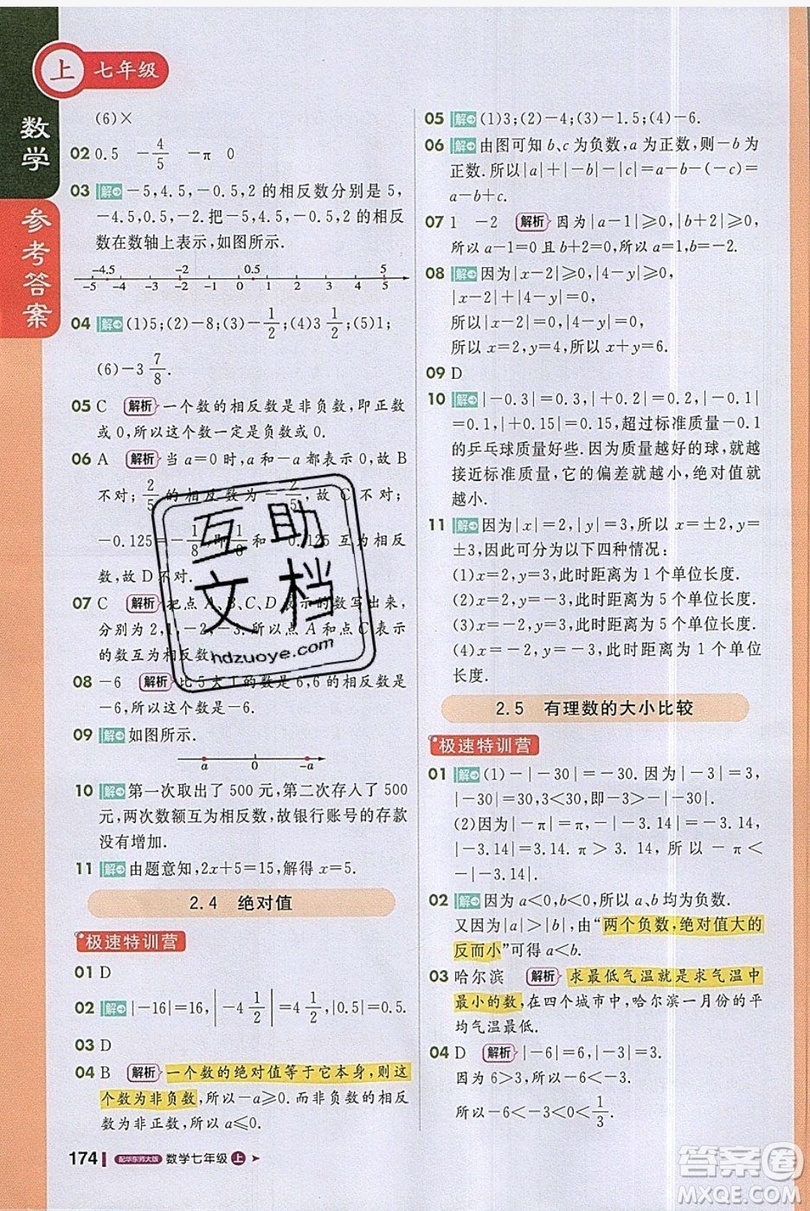 上 七年级
数学
参考答案
(6)×
02 0.5 -4/5 -π 0
03 解 -5,4.5,-0.5,2的相反数分别是5,
-4.5,0.5,-2.把-5,4.5,-0.5,2的相反
数在数轴上表示,如图所示.
-4.5 -2 0.5
-5 -4 -3 -2 -1 0 1 2 3 4 5
04 解 (1)5;(2)-8;(3)-1/2;(4)3 1/2;(5)1;
(6)-3 7/8.
05 C 解析 一个数的相反数是非负数,即正数
或0,所以这个数一定是负数或0.
06 A 解析 当a=0时,a和-a都表示0,故B
不对;2/5的相反数为-2/5,故C不对;
-0.125=-1/8,即-1/8和-0.125互为相反
数,故D不对.
07 C 解析 把点A、B、C、D表示的数写出来,
分别为2,1,-2,-3.所以点A和点C表示
的数互为相反数
08 -6 解析 比5大1的数是6,6的相反数是
-6,所以这个数是-6.
09 解 如图所示.
a 0 -a
10 解 第一次取出了500元,第二次存入了500
元,两次数额互为相反数,故银行账号的存款
没有增加.
11 解 由题意知,2x+5=15,解得x=5.
2.4 绝对值
极速特训营
01 D
02 解 |-16|=16,|-4 1/2|=4 1/2,|0.5|=0.5.
03 D
04 B 解析 一个数的绝对值等于它本身,则这
个数为非负数,所以-a≥0.而非负数的相反
数为非正数,所以a≤0.
174 配华东师大版 数学七年级 上
05 解 (1)3;(2)-4;(3)-1.5;(4)-6.
06 解 由图可知b、c为负数,a为正数,则-b为
正数.所以|a|+|-b|-|c|=a-b-(-c)=
a-b+c.
07 1 -2 解析 因为|a-1|≥0,|b+2|≥0,
所以a-1=0,b+2=0.所以a=1,b=-2.
08 解 因为|x-2|≥0,|4-y|≥0,
|x-2|+|4-y|=0,
所以|x-2|=0,|4-y|=0.
所以x=2,y=4,所以x+y=6.
09 D
10 解 |-0.3|=0.3,|+0.2|=0.2,|-0.1|
=0.1,|+0.15|=0.15,超过标准质量-0.1
的乒乓球质量好些.因为质量越好的球,就越
接近标准质量,它的偏差就越小,绝对值就
越小.
11 解 因为|x|=2,|y|=3,所以x=±2,y=
±3.因此可分为以下四种情况:
(1)x=2,y=3,此时距离为1个单位长度.
(2)x=2,y=-3,此时距离为5个单位长度.
(3)x=-2,y=3,此时距离为5个单位长度.
(4)x=-2,y=-3,此时距离为1个单位
长度.
2.5 有理数的大小比较
极速特训营
01 解 (1)-|-30|=-30.因为|-3|=3,
|-30|=30,3<30,即-3>-|-30|.
(2)因为|-π|=π,|-3.14|=3.14,
-|-3.14|=-3.14,π>3.14,所以-π<
-|-3.14|.
02 解 因为a<0,b<0,所以a、b均为负数.
又因为|a|>|b|,由“两个负数,绝对值大的
反而小”可得a<b.
03 哈尔滨 解析 求最低气温就是求气温中
最小的数,在四个城市中,哈尔滨一月份的平
均气温最低.
04 D 解析 |-6|=6,|-3|=3.
因为6>3,所以-6<-3.
所以-6<-3<0<1/3.
互助
文档
hdzuoye.com
答案圈
MXQE.COM